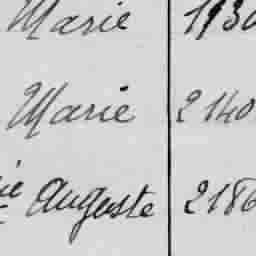 Marie 1130
Marie 2140
ie Auguste 2186